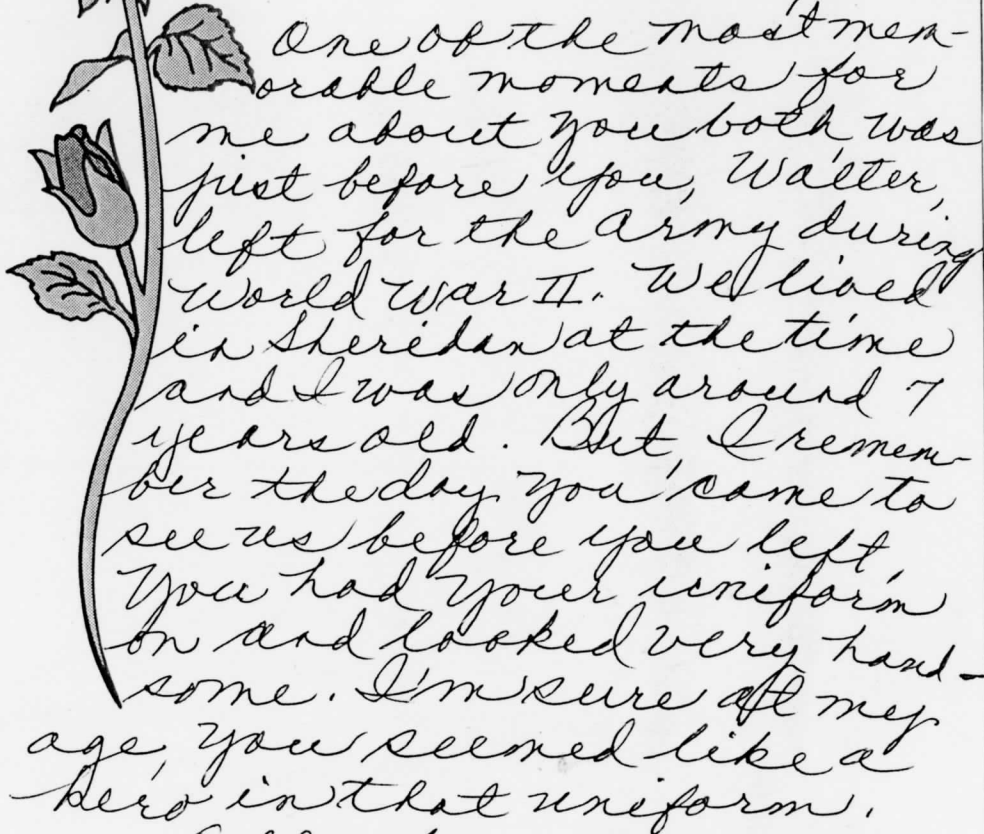 One of the most mem-
orable moments for
me about you both was
just before you, Walter,
left for the Army during
World War II. We lived
in Sheridan at the time
and I was only around 7
years old. But, I remem-
ber the day you came to
see us before you left.
You had your uniform
on and looked very hand-
some. I'm sure at my
age, you seemed like a
hero in that uniform.